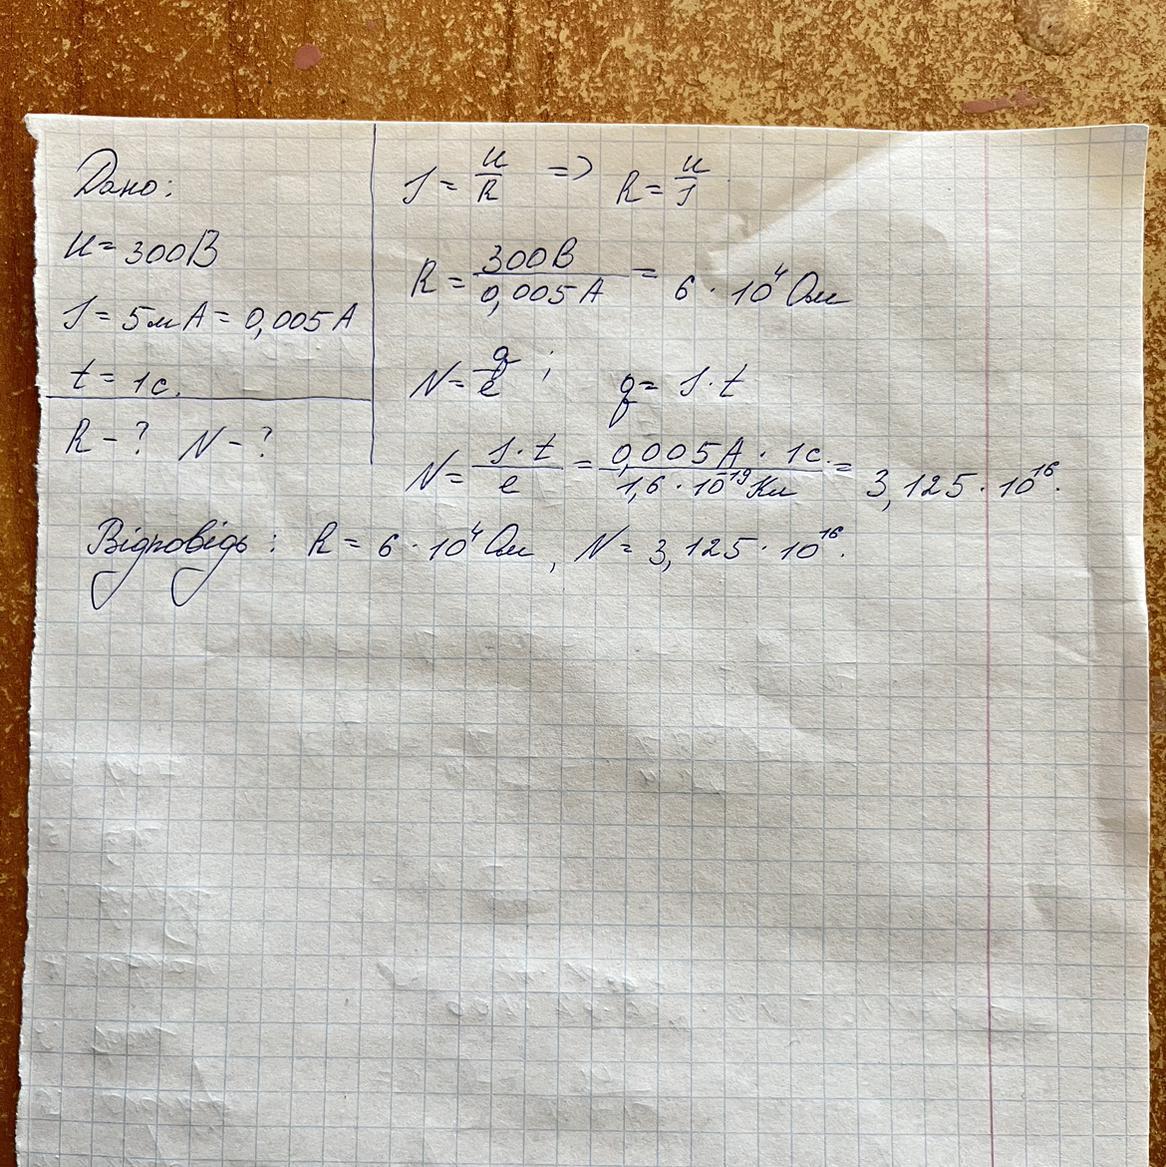 Дано:
U = 300В
I = 5мА = 0,005А
t = 1с.
R - ? N - ?
I = U/R => R = U/I.
R = 300В/0,005А = 6 · 10⁴ Ом
N = q/e ; q = I · t
N = I · t/e = 0,005А · 1с./1,6 · 10⁻¹⁹ Кл = 3,125 · 10¹⁶.
Відповідь: R = 6 · 10⁴ Ом, N = 3,125 · 10¹⁶.